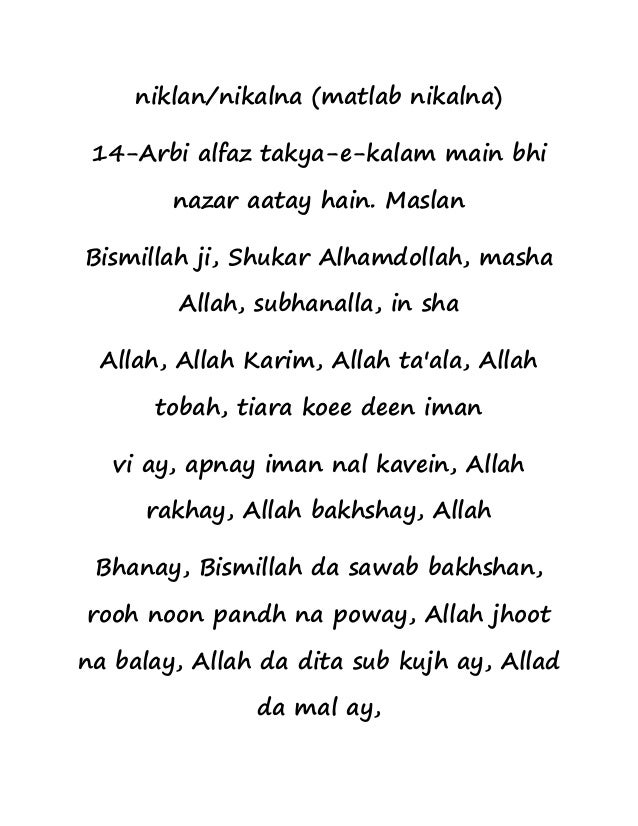 niklan/nikalna (matlab nikalna)
14-Arbi alfaz takya-e-kalam main bhi
nazar aatay hain. Maslan
Bismillah ji, Shukar Alhamdollah, masha
Allah, subhanalla, in sha
Allah, Allah Karim, Allah ta'ala, Allah
tobah, tiara koee deen iman
vi ay, apnay iman nal kavein, Allah
rakhay, Allah bakhshay, Allah
Bhanay, Bismillah da sawab bakhshan,
rooh noon pandh na poway, Allah jhoot
na balay, Allah da dita sub kujh ay, Allad
da mal ay,